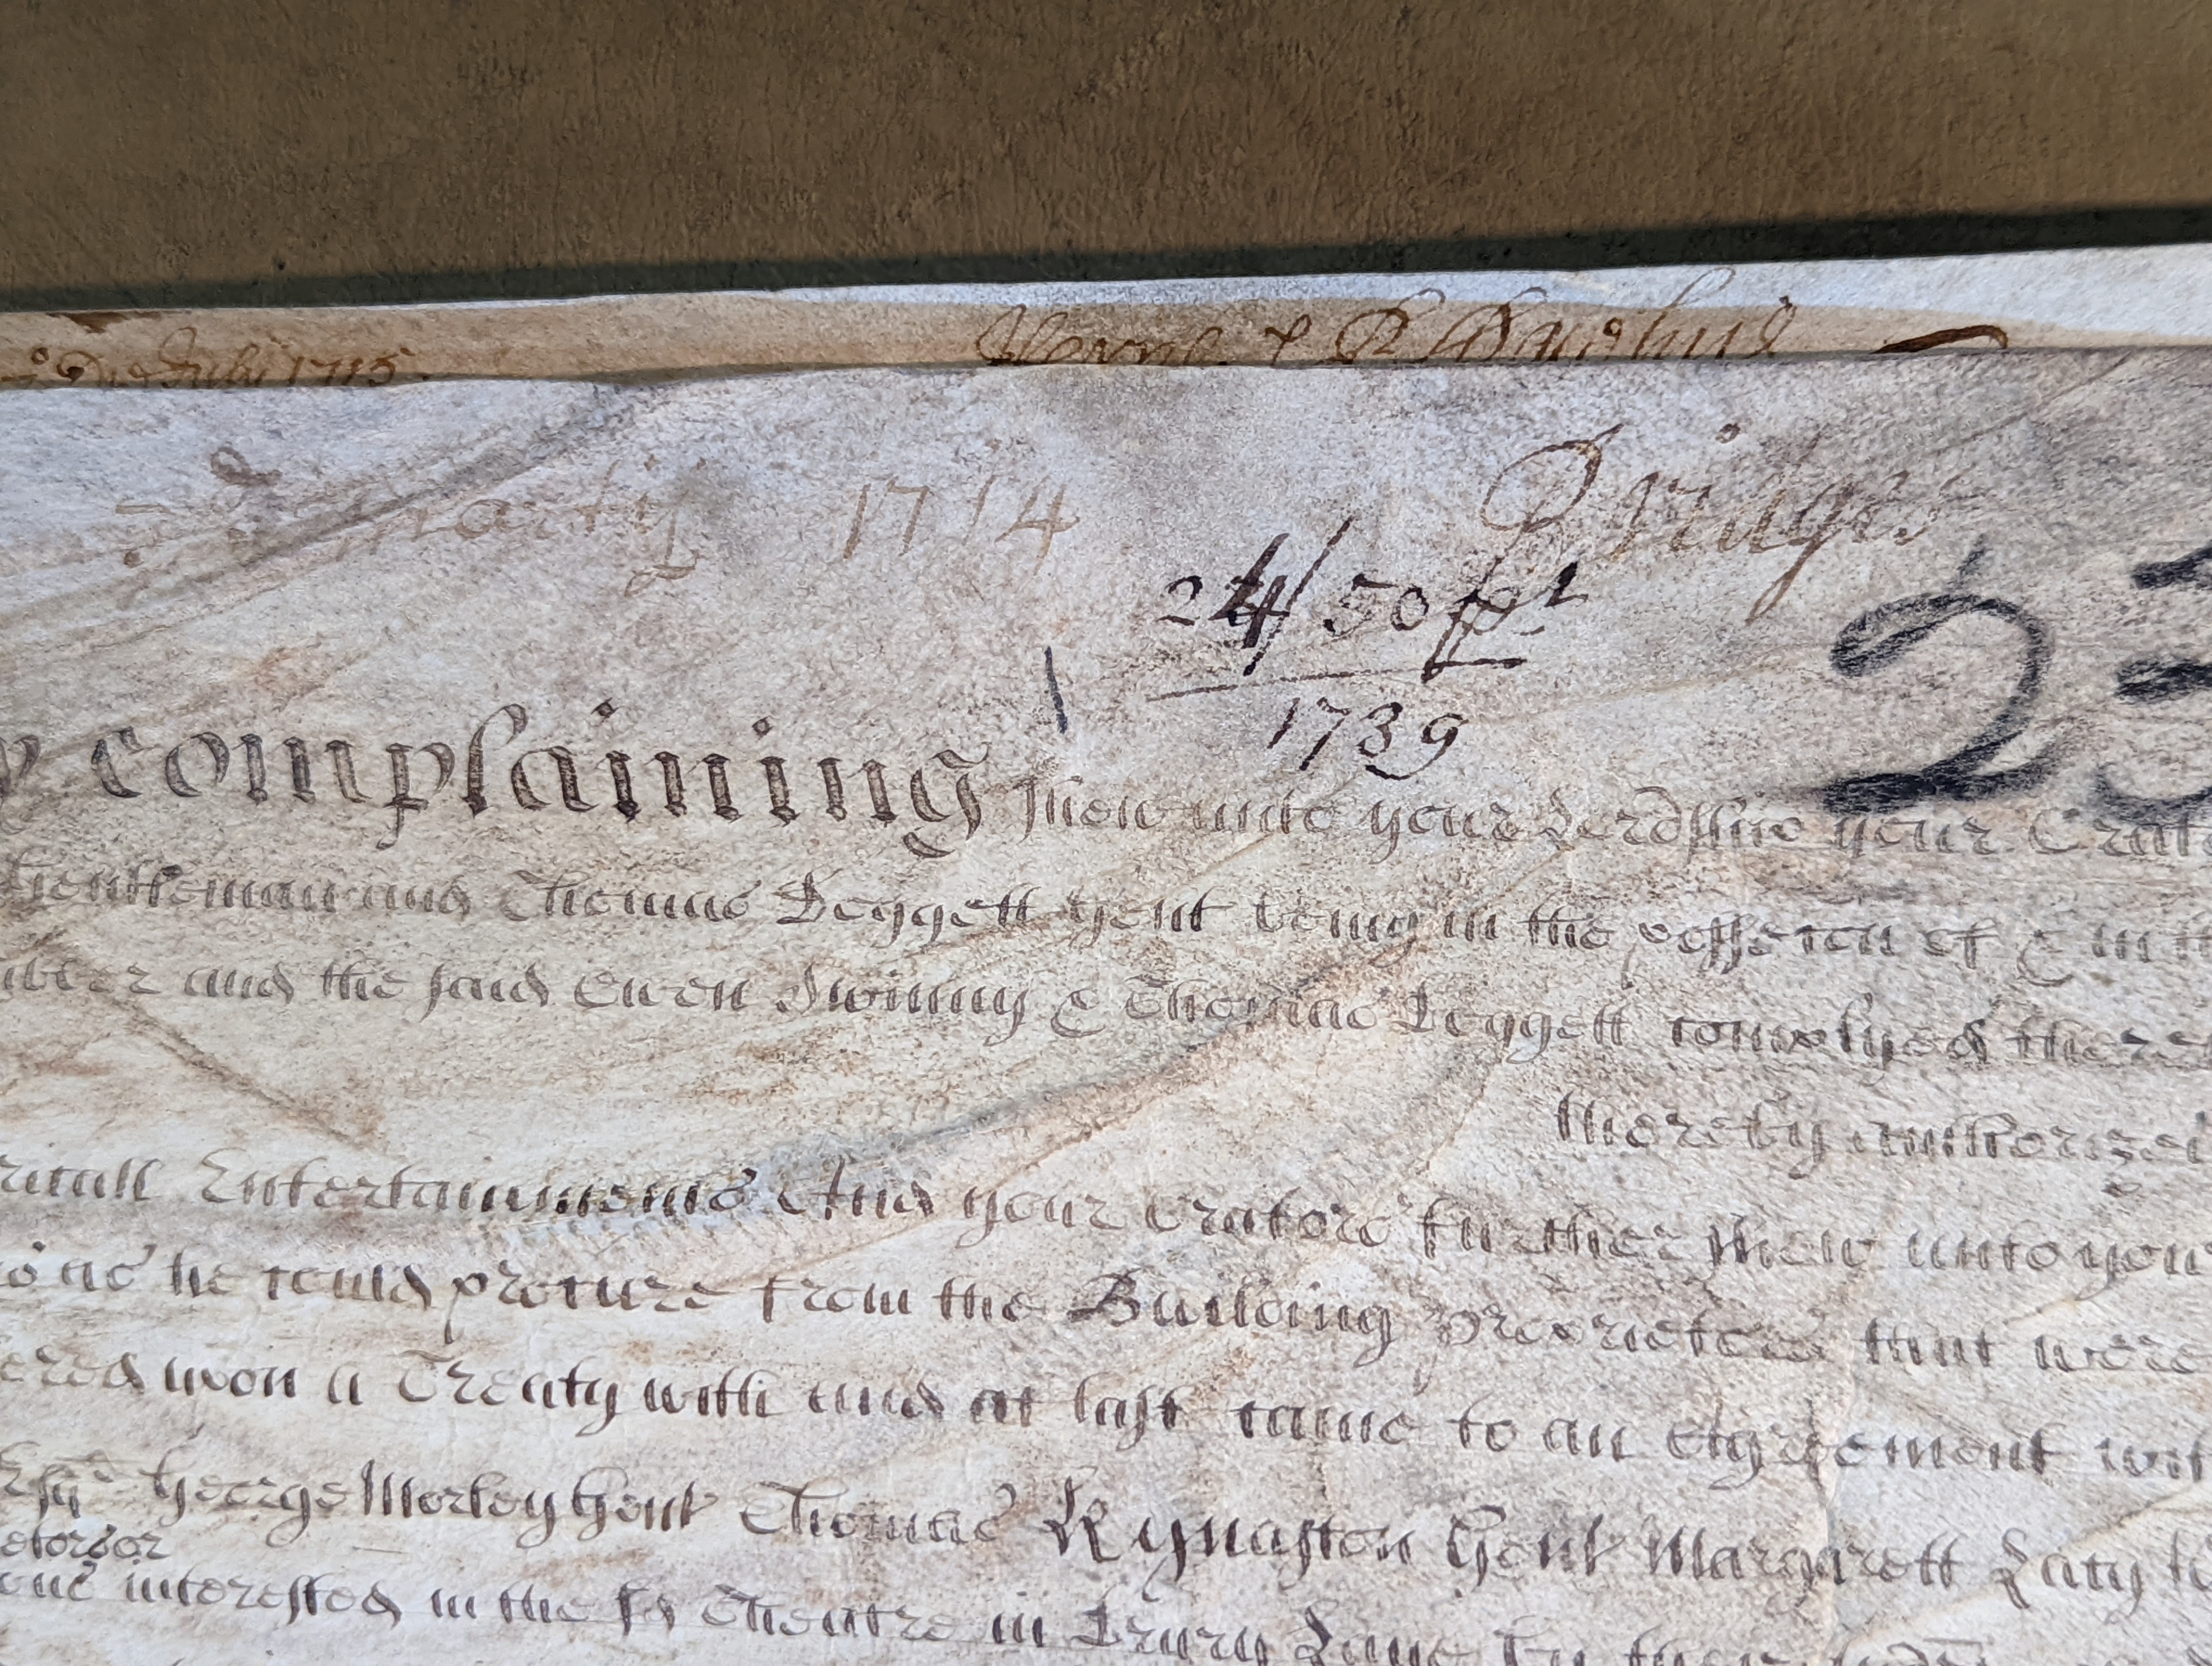 Julii 1715
Martij 1714
Bridges
24/50
1739
23
complaining shew unto your Lordship your Orat
Gentleman and Thomas Leggett Gent being in the possession of & in
and the said Owen Swinny & Thomas Leggett complyed there
thereby authorized
Entertainments And your Orators further shew unto you
as he could procure from the Building Proprietors that were
upon a Treaty with and at last came to an Agreement wit
Esqr George Morley Gent Thomas Kynaston Gent Margarett Lacy
interested in the sd Theatre in Drury Lane